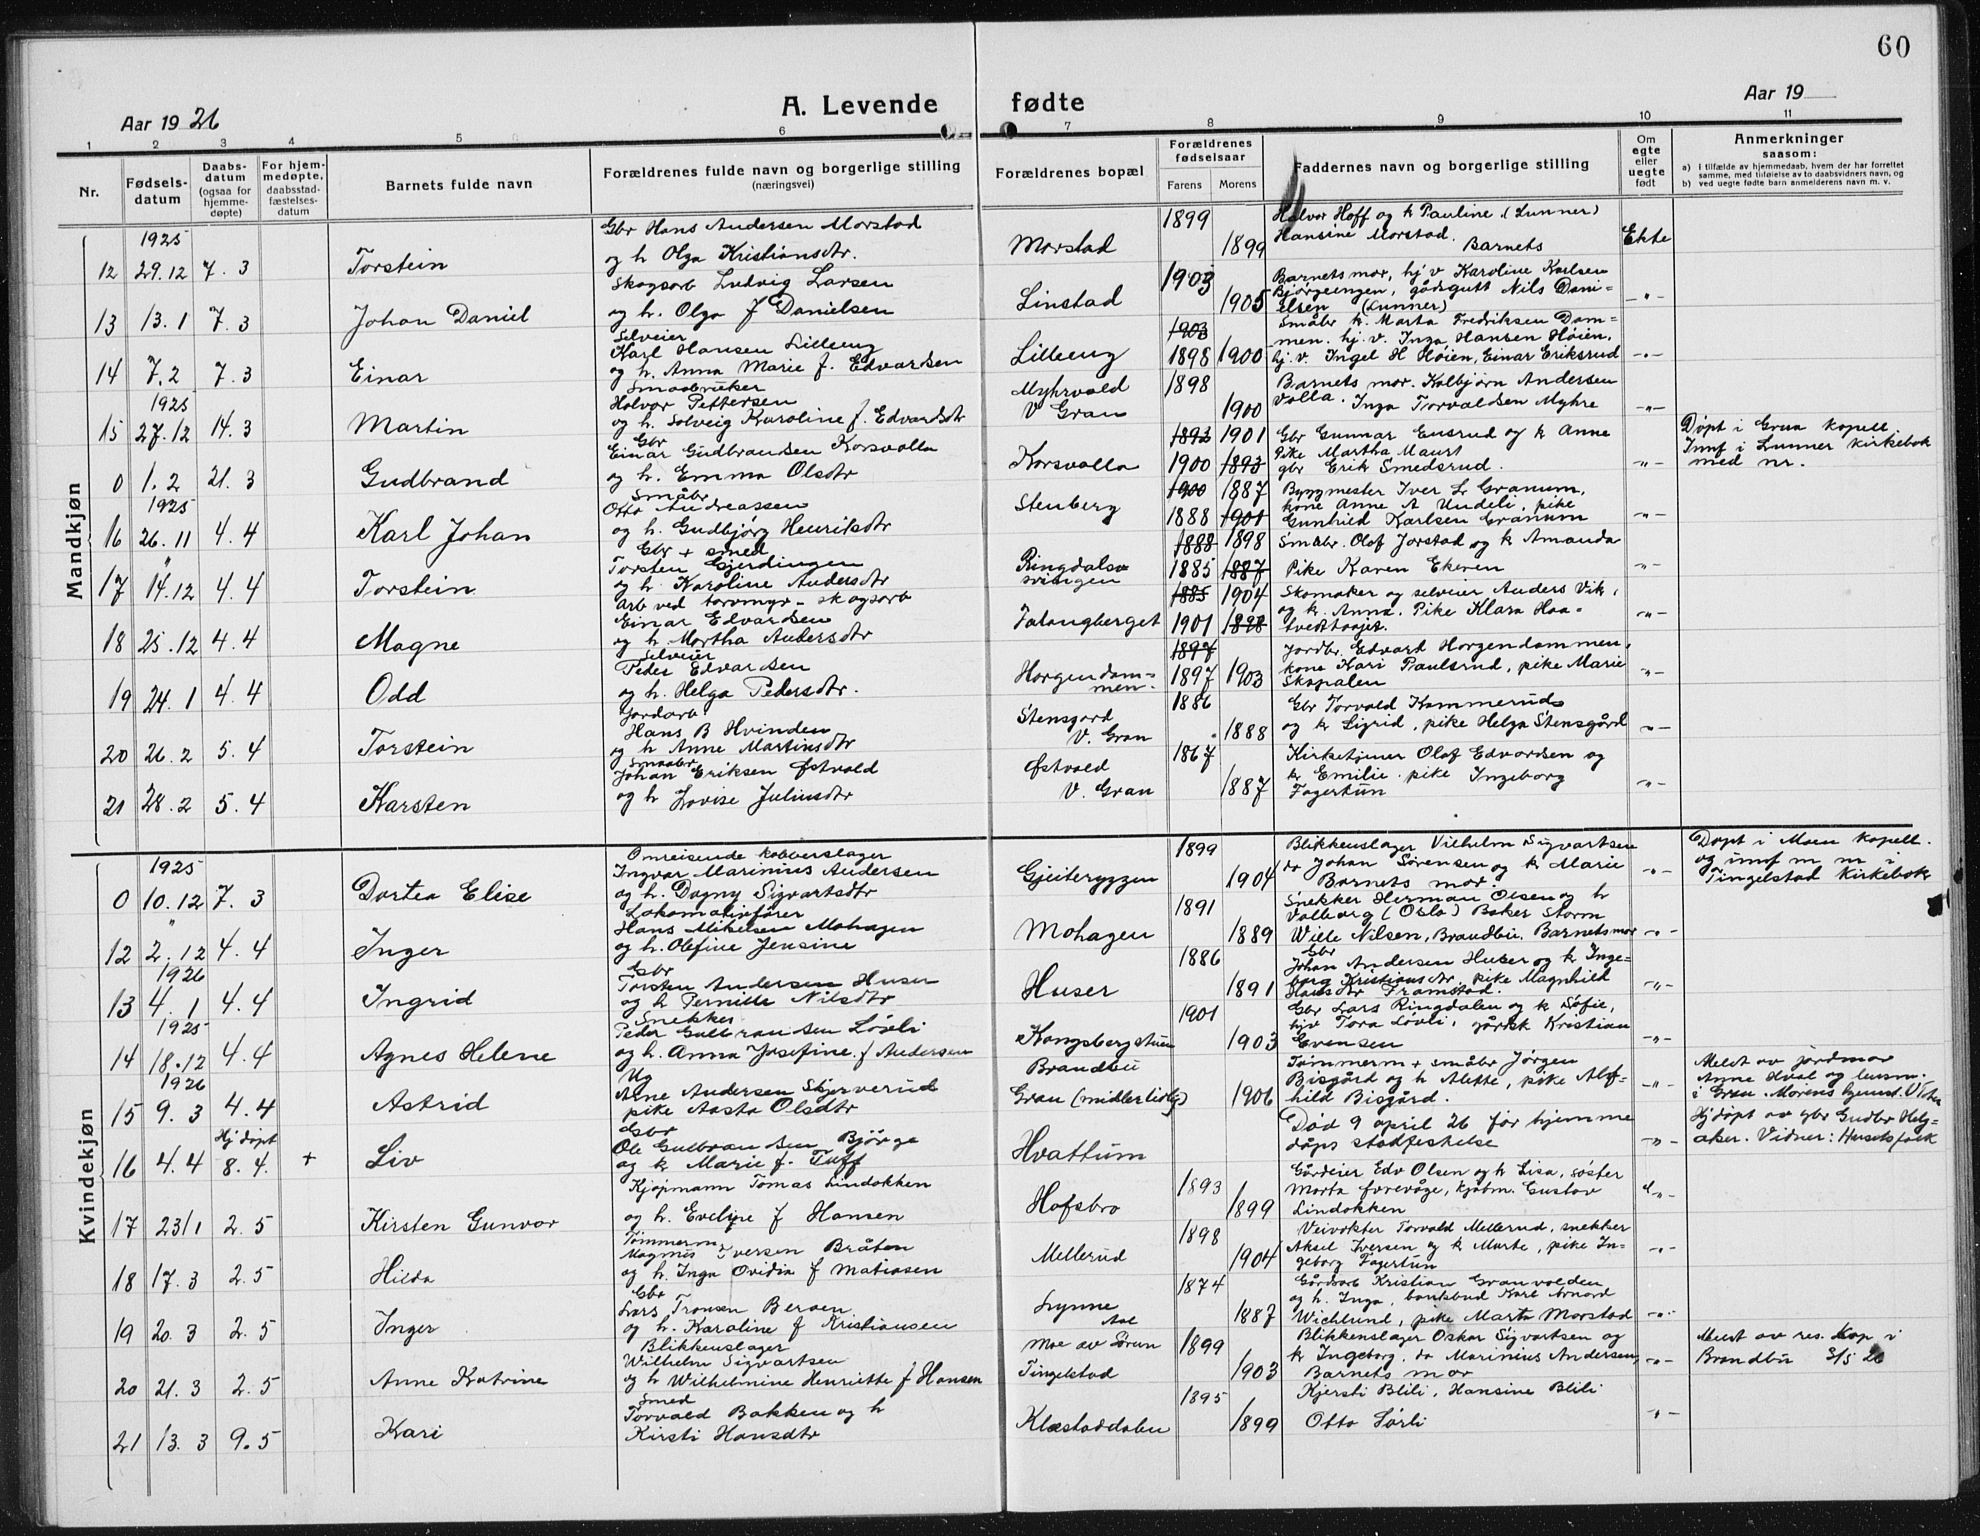 60
Aar 1926
A. Levende fødte
Aar 19
1 2 3 4 5 6 7 8 9 10 11
Nr.
Fødsels-
datum
Daabs-
datum
(ogsaa for
hjemme-
døpte)
For hjem-
medøpte,
daabsstad-
fæstelses-
datum
Barnets fulde navn
Forældrenes fulde navn og borgerlige stilling
(næringsvei)
Forældrenes bopæl
Forældrenes
fødselsaar
Farens Morens
Faddernes navn og borgerlige stilling
Om
egte
eller
uegte
født
Anmerkninger
saasom:
a) i tilfælde av hjemmedaab, hvem der har forrettet
samme, med tilføielse av to daabsvidners navn, og
b) ved uegte fødte barn anmelderens navn m. v.
Mandkjøn
1925
12 29.12 7.3 Torstein
Gbr Hans Andersen Morstad
og h Olga Kristiansdtr.
Morstad 1899 1899
Halvor Hoff og k Pauline (Lunner)
Hansine Morstad. Barnets
Ekte
13 13.1 7.3 Johan Daniel
Skogsarb Ludvig Larsen
og h. Olga f Danielsen
Linstad 1903 1905
Barnets mor, hj v Karoline Karlsen
Bjørgeengen, gårdsgutt Nils Dani=
elsen (Lunner)
-"-
14 7.2 7.3 Einar
Selveier
Karl Hansen Lilleeng
og h. Anna Marie f. Edvardsen
Lilleeng 1903 1898 1900
Småbr k. Marta Fredriksen Dam=
men. hj. v. Inga Hansen Høien,
hj. v. Ingel H Høien, Einar Eriksrud
-"-
1925
15 27.12 14.3 Martin
Smaabruker
Halvor Pettersen
og h. Solveig Karoline f. Edvardsdtr
Myhrvold
V Gran
1898 1900
Barnets mor. Kolbjørn Andersen
Volla. Inga Torvaldsen Myhre
-"-
0 1.2 21.3 Gudbrand
Gbr
Einar Gudbrandsen Korsvolla
og h. Emma Olsdtr
Korsvolla 1893 1901 1900 1893
Gbr Gunnar Ensrud og k Anne
Pike Martha Maurt
gbr Erik Smedsrud.
-"-
Døpt i Grua kapell.
Innf i Lunner kirkebok
med nr.
1925
16 26.11 4.4 Karl Johan
Småbr
Otto Andreassen
og h. Gudbjörg Henriksdtr
Stenberg 1900 1887 1888 1901
Byggmester Iver L Granum,
kone Anne A Undeli, pike
Gunhild Karlsen Granum
-"-
17 14.12 4.4 Torstein
Gbr + smed
Torsten Gjerdingen
og h. Karoline Andersdtr
Ringdals-
svingen
1888 1898 1885 1887
Småbr. Olof Jorstad og k Amanda
Pike Karen Ekeren
-"-
18 25.12 4.4 Magne
Arb ved torvmyr - skogsarb
Einar Edvardsen
og h. Martha Andersdtr
Jalangberget 1885 1904 1901 1898
Skomaker og selveier Anders Vik,
og k. Anna. Pike Klara Haa=
tvedthaajet.
-"-
19 24.1 4.4 Odd
Selveier
Peder Edvardsen
og h. Helga Pedersdtr.
Horgendam=
men.
1897 1897 1903
Jordbr. Edvard Horgendammen,
kone Kari Paulsrud, pike Marie
Skapalen
-"-
20 26.2 5.4 Torstein
Jordarb
Hans B Hvinden
og h Anne Martinsdtr
Stensgard
V. Gran
1886 1888
Gbr Torvald Kammerud
og k Sigrid, pike Helga Stensgård
-"-
21 28.2 5.4 Karsten
Smaabr
Johan Eriksen Østvold
og h Lovise Juliusdtr
Østvold
V. Gran
1867 1887
Kirketjener Olaf Edvardsen og
k Emilie. pike Ingeborg
Fagertun
-"-
Kvindekjøn
1925
0 10.12 7.3 Dortea Elise
Omreisende kobberslager
Ingvar Marinius Andersen
og h. Dagny Sigvartsdtr
Gjeiteryggen 1899 1904
Blikkenslager Vilhelm Sigvartsen
do Johan Sørensen og k Marie
Barnets mor.
-"-
Døpt i Moen kapell.
og innf m nr i
Tingelstad Kirkebok
12 2.12 4.4 Inger
Lokomotivfører
Hans Mikelsen Mohagen
og h. Olefine Jensine
Mohagen 1891 1889
Snekker Herman Olsen og h
Valborg (Oslo) Baker Storm
Wille Nilsen, Brandbu. Barnets mor
-"-
1926
13 4.1 4.4 Ingrid
Gbr
Torsten Andersen Huser
og h Pernille Nilsdtr
Huser 1886 1891
Gbr
Johan Andersen Huser og k Inge=
borg Kristiansdtr, pike Magnhild
Hansdtr Framstad.
-"-
1925
14 18.12 4.4 Agnes Helene
Snekker
Peder Gulbrandsen Løvli
og h. Anna Josefine f Andersen
Kongsbergstuen
Brandbu
1901 1903
Gbr Lars Ringdalen og k Sofie,
hjv Tora Løvli, gårsk Kristian
Evensen
-"-
1926
15 9.3 4.4 Astrid
Ug
Arne Andersen Skjerverud
pike Aasta Olsdtr
Gran (midlertidig) 1906
Tømmerm + småbr Jørgen
Bisgård og h Alette, pike Alf=
hild Bisgård.
-"-
Meldt av jordmor
Anne Hval og lensm.
i Gran. Morens hjemst. V Toten
16 4.4 Hj døpt 8.4. + Liv
Gbr
Ole Gulbrandsen Bjørge
og k Marie f. Tuff
Hvattum
Død 9 april 26 før hjemme
dåps stadfestelse
-"-
Hj døpt av gbr Gudbr Helg-
aker. Vidner: Husetsfolk
17 23/1 2.5 Kirsten Gunvor
Kjøpmann Tomas Lindokken
og h. Eveline f Hansen
Hofsbro 1893 1899
Gårdeier Edv Olsen og k Lisa, søster
Marta, kjøbm. Gustav
Lindokken
-"-
18 17.3 2.5 Hilda
Tømmerm
Magnus Iversen Bråten
og h. Inga Ovidia f Matiasen
Mellerud 1898 1904
Veivokter Torvald Mellerud, snekker
Aksel Iversen og k Marte, pike In=
geborg Fagertun
-"-
19 20.3 2.5 Inger
Gbr
Lars Tronsen Beroen
og h. Karoline f Kristiansen
Lynne 1874 1887
Gårdarb Kristian Granvolden
og h. Inga, bankbud Karl Arnord
Wichlund, pike Marta Morstad
-"-
20 21.3 2.5 Anne Katrine
Blikkenslager
Wilhelm Sigvartsen
og h Wilhelmine Henriette f Hansen
Moe av Søren
Tingelstad
1899 1903
Blikkenslager Oskar Sigvartsen og
k Ingeborg, do Marinius Andersen,
Barnets mor
-"-
Meldt av res. kap i
Brandbu 3/5 26
21 13.3 9.5 Kari
Smed
Torvald Bakken og h
Kirsti Hansdtr
Klæstaddalen 1895 1899
Kjersti Blili, Hansine Blili
Otto Sørli
-"-